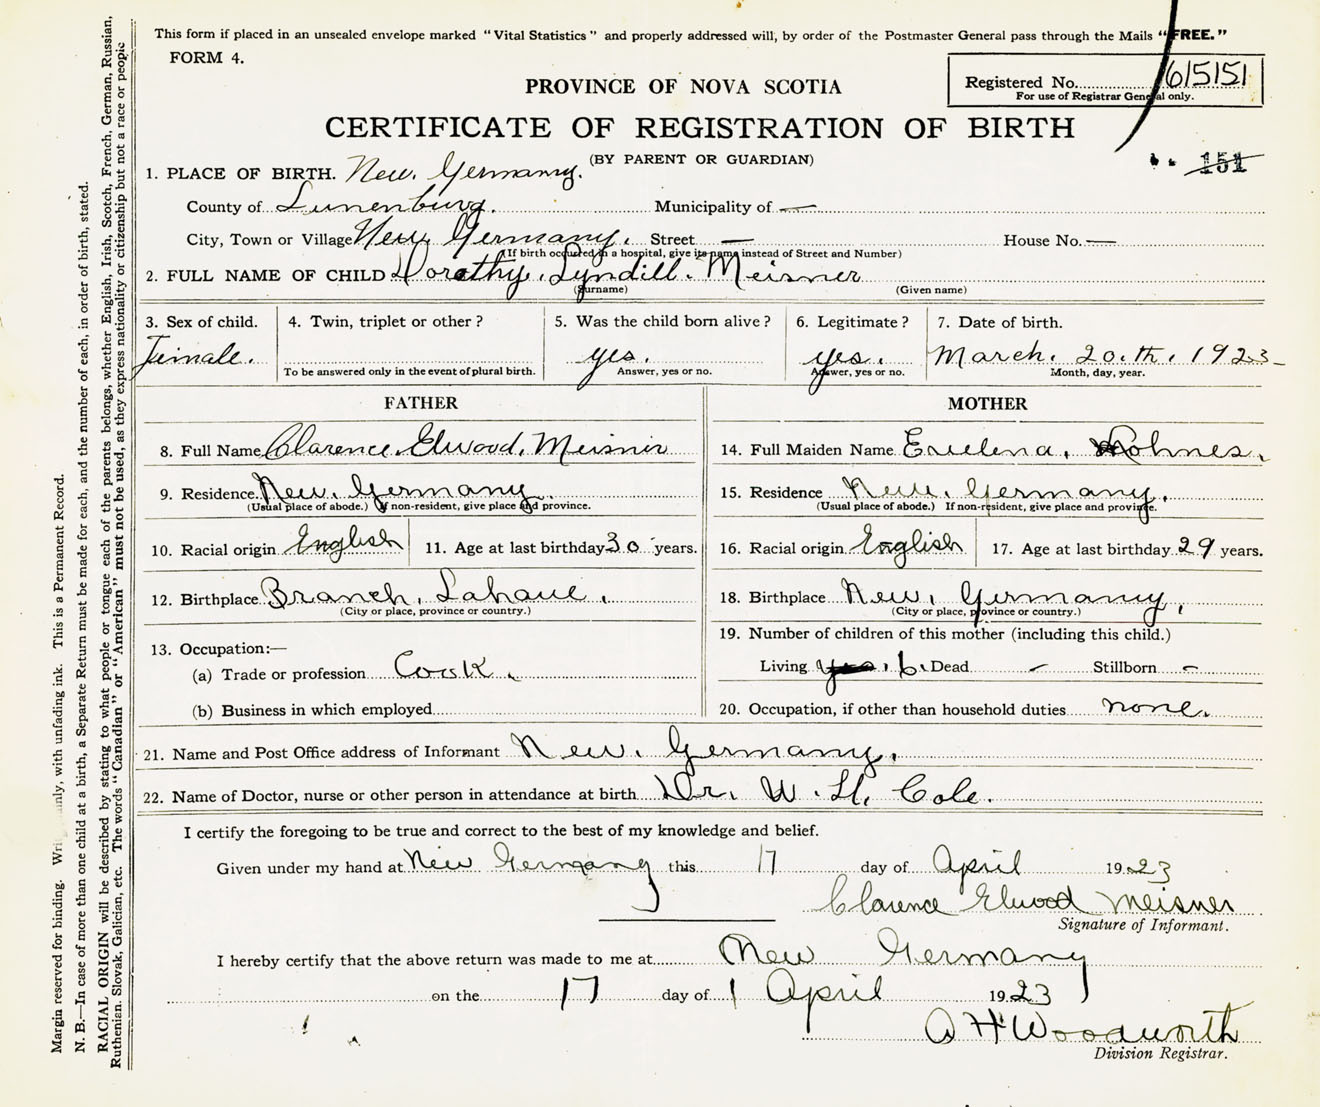 This form if placed in an unsealed envelope marked "Vital Statistics" and properly addressed will, by order of the Postmaster General pass through the Mails "FREE."
FORM 4.
Registered No. 615151
For use of Registrar General only.
PROVINCE OF NOVA SCOTIA
CERTIFICATE OF REGISTRATION OF BIRTH
(BY PARENT OR GUARDIAN)
151
1. PLACE OF BIRTH. New. Germany.
County of Lunenburg. Municipality of —
City, Town or Village New Germany. Street — House No. —
(If birth occurred in a hospital, give its name instead of Street and Number)
2. FULL NAME OF CHILD Dorothy. Lyndill. Meisner
(Surname) (Given name)
3. Sex of child. 4. Twin, triplet or other? 5. Was the child born alive? 6. Legitimate? 7. Date of birth.
Female. yes. yes. March. 20.th. 1923
To be answered only in the event of plural birth. Answer, yes or no. Answer, yes or no. Month, day, year.
FATHER MOTHER
8. Full Name Clarence. Elwood. Meisner 14. Full Maiden Name Evelena. Rohnes.
9. Residence. New. Germany. 15. Residence New. Germany.
(Usual place of abode.) If non-resident, give place and province. (Usual place of abode.) If non-resident, give place and province.
10. Racial origin English 11. Age at last birthday 30 years. 16. Racial origin English 17. Age at last birthday 29 years.
12. Birthplace Branch. Lahave. 18. Birthplace New. Germany.
(City or place, province or country.) (City or place, province or country.)
19. Number of children of this mother (including this child.)
13. Occupation:—
Living 6. Dead - Stillborn -
(a) Trade or profession Cook.
(b) Business in which employed 20. Occupation, if other than household duties none.
21. Name and Post Office address of Informant New. Germany.
22. Name of Doctor, nurse or other person in attendance at birth Dr. W. H. Cole.
I certify the foregoing to be true and correct to the best of my knowledge and belief.
Given under my hand at New Germany this 17 day of April 1923
Clarence Elwood Meisner
Signature of Informant.
I hereby certify that the above return was made to me at New Germany
on the 17 day of April 1923
A H Woodworth
Division Registrar.
Margin reserved for binding. only, with unfading ink. This is a Permanent Record.
N. B.—In case of more than one child at a birth, a Separate Return must be made for each, and the number of each, in order of birth, stated.
RACIAL ORIGIN will be described by stating to what people or tongue each of the parents belongs, whether English, Irish, Scotch, French, German, Russian,
Ruthenian, Slovak, Galician, etc. The words "Canadian" or "American" must not be used, as they express nationality or citizenship but not a race or people